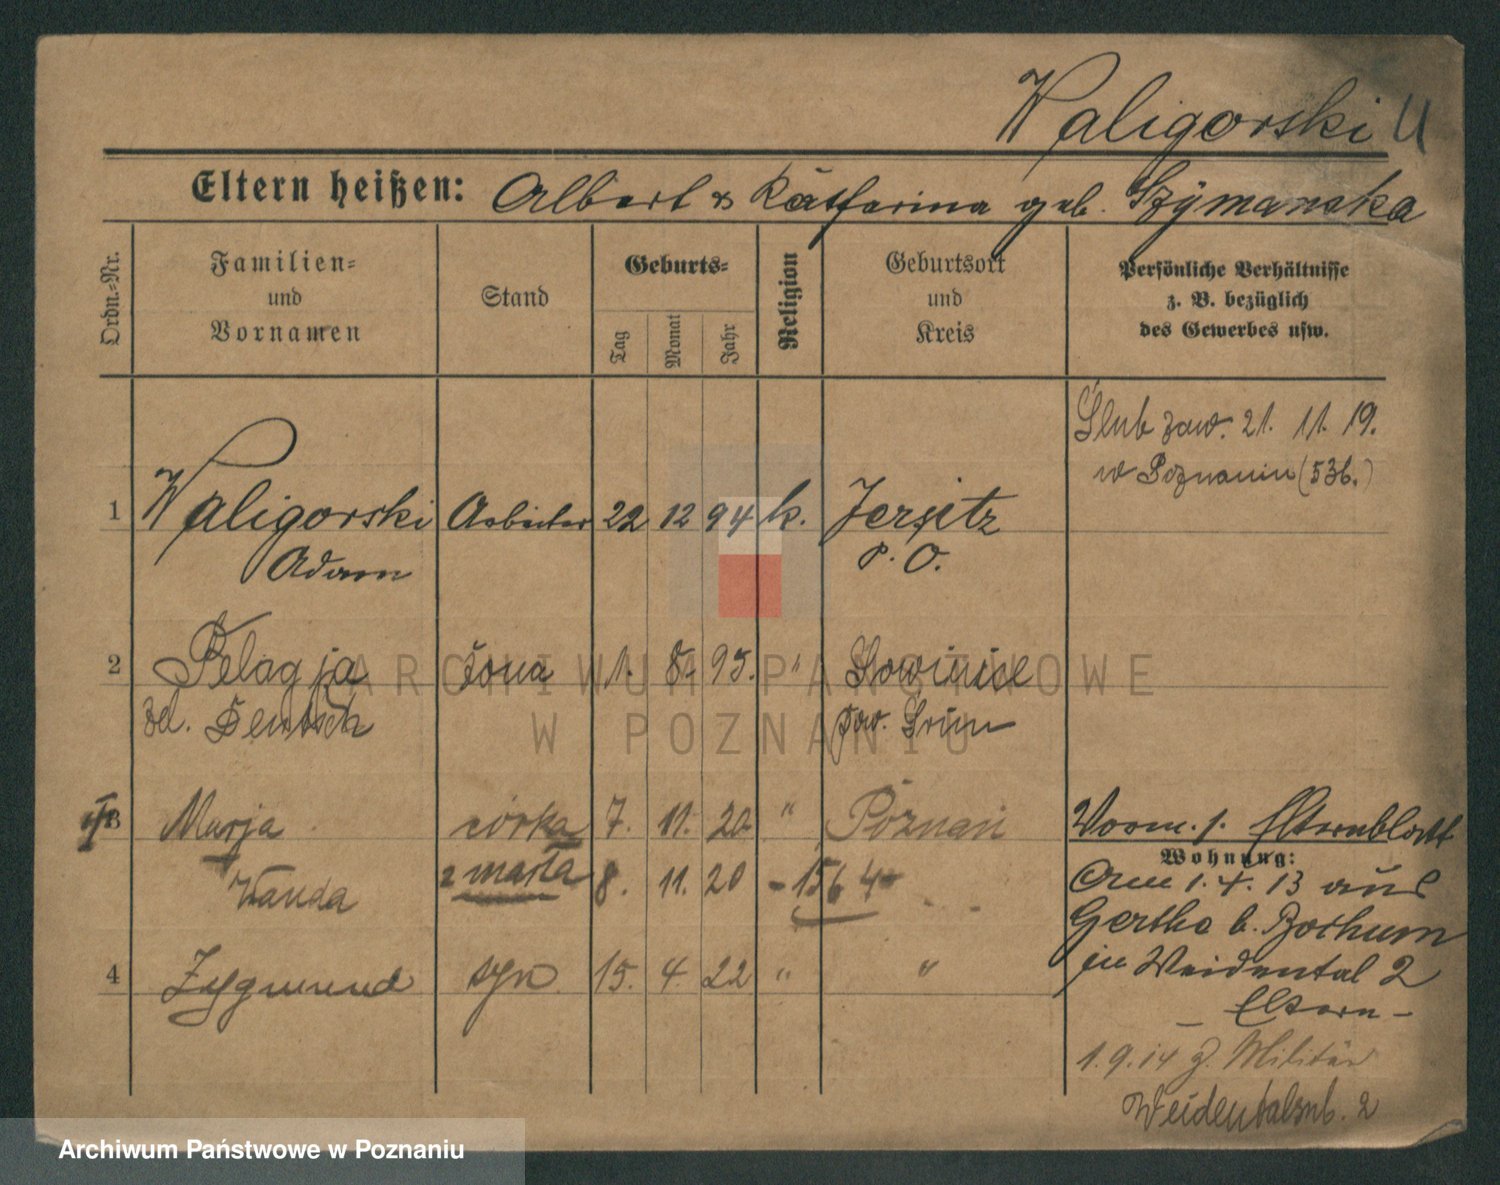 Waligorski U
Eltern heißen: Albert & Katharina geb. Szymanska
Ordn.-Nr.
Familien=
und
Vornamen
Stand
Geburts=
Tag
Monat
Jahr
Religion
Geburtsort
und
Kreis
Persönliche Verhältnisse
z. B. bezüglich
des Gewerbes usw.
Ślub zaw. 21. 11. 19.
w Poznaniu (536.)
1 Waligorski Arbeiter 22 12 94 k. Jersitz
Adam P. O.
2 Pelagja żona 1. 8. 95. "
zel.
pow. Śrim
3 Marja córka 7. 11. 20 " Poznań
Wanda zmarła 8. 11. 20 - 1564 -
4 Zygmund syn 15. 4. 22 " "
Vorm. s. Elternblatt
Wohnung:
Am 1. 4. 13 aus
Gerthe b. Bochum
in Weidental 2
- Eltern -
1. 9. 14 z. Militär
2
ARCHIWUM PAŃSTWOWE
W POZNANIU
Archiwum Państwowe w Poznaniu